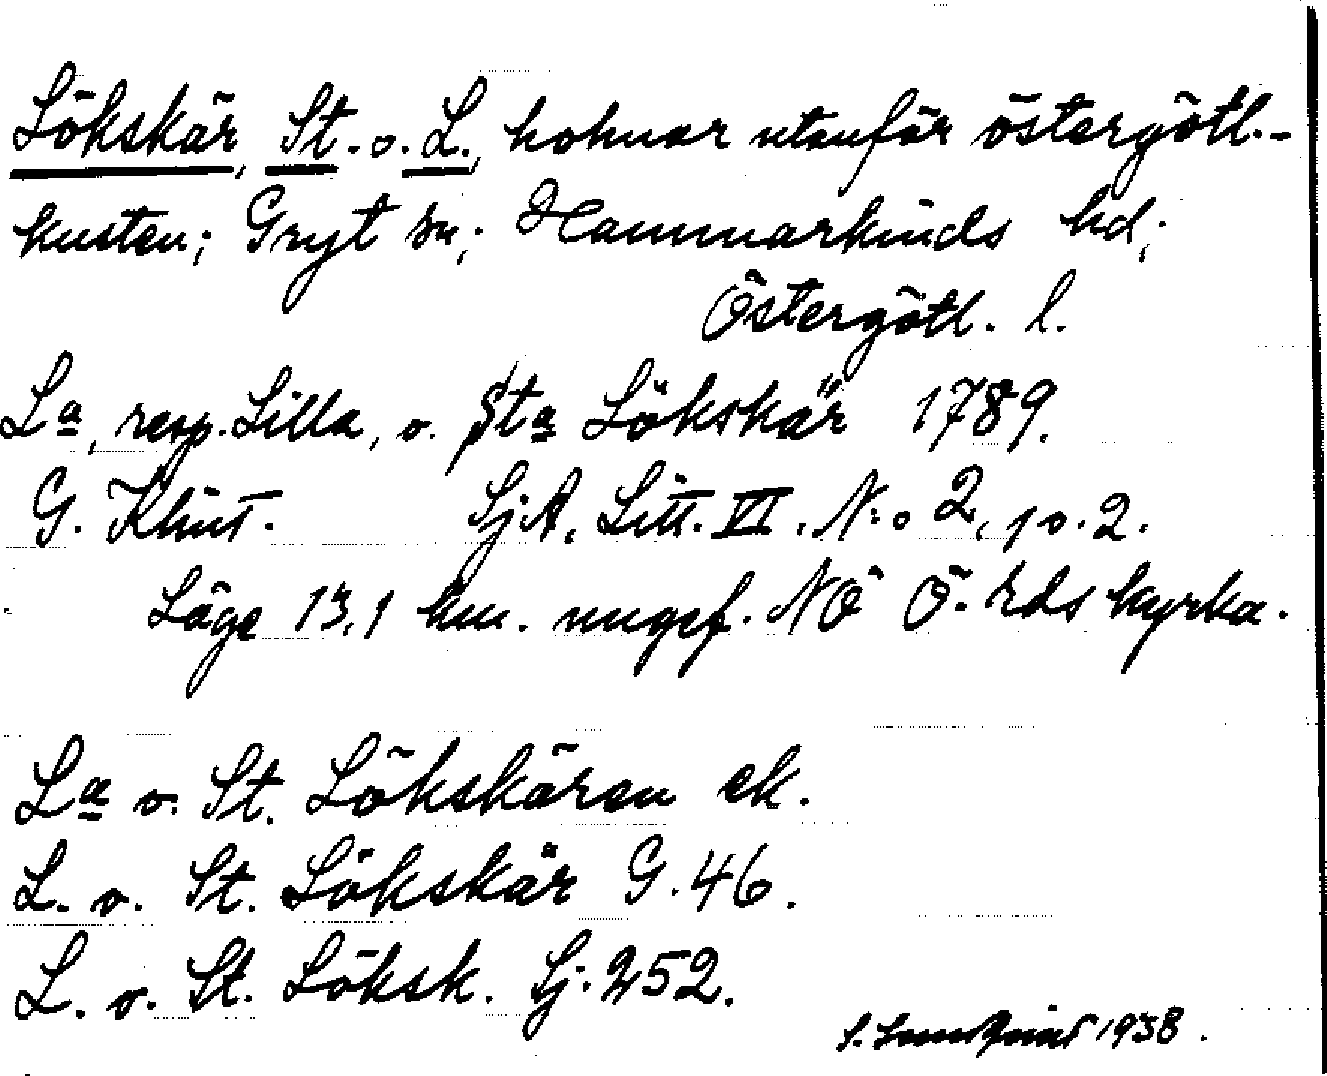 Lökskär, St. o. L., holmar utanför östergötl.-
kusten; Gryt sn; Hammarkinds hd;
Östergötl. l.
La, resp. Lilla, o. Sta Lökskär 1789.
G. Klint. Sj.A. Litt. VI. N:o 2, p. 2.
Läge 13,1 km. ungef. NÖ Ö. Rds kyrka.
La o. St. Lökskären ek.
L. o. St. Lökskär G. 46.
L. o. St. Löksk. Sj. 252.
S. Landqvist 1938.